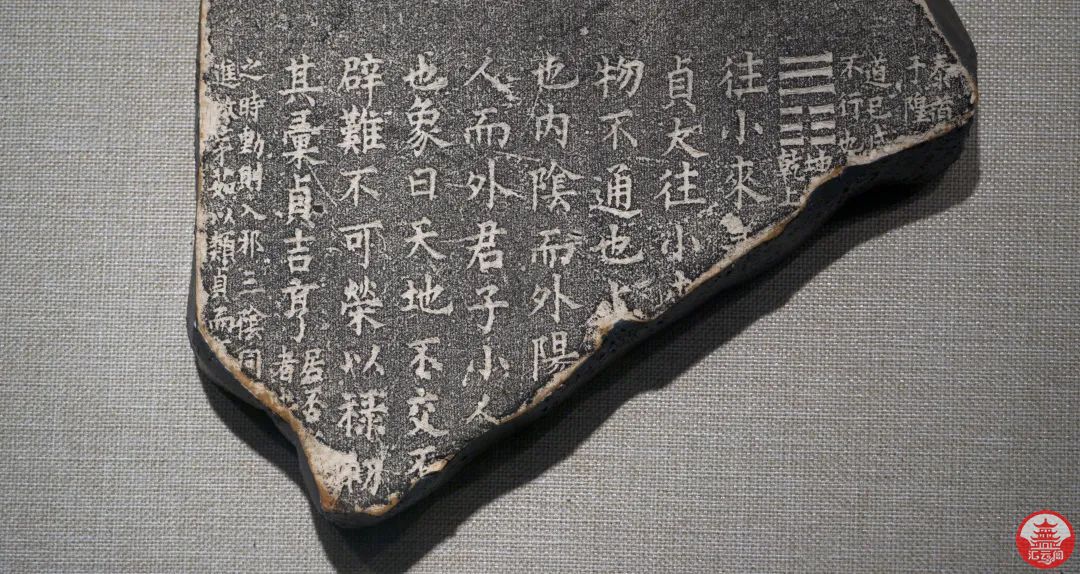 泰
于隍
道已成
不行也
地
乾上
往小來
貞大往小
物不通也上
也内陰而外陽
人而外君子小人
也象曰天地不交
辟難不可榮以禄初
其彙貞吉亨
居否
者
之時動則入邪三陰同
茅茹以類貞而